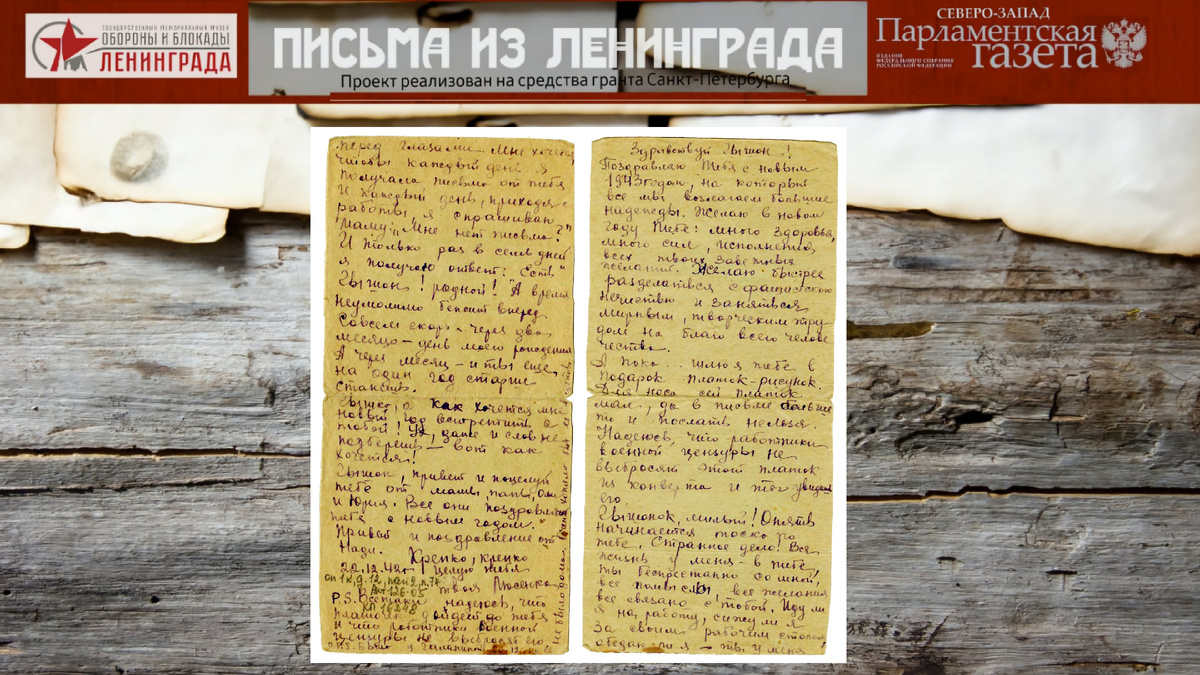 ГОСУДАРСТВЕННЫЙ МЕМОРИАЛЬНЫЙ МУЗЕЙ
ОБОРОНЫ И БЛОКАДЫ
ЛЕНИНГРАДА
ПИСЬМА ИЗ ЛЕНИНГРАДА
Проект реализован на средства гранта Санкт-Петербурга
СЕВЕРО-ЗАПАД
Парламентская
газета
ИЗДАНИЕ
ФЕДЕРАЛЬНОГО СОБРАНИЯ
РОССИЙСКОЙ ФЕДЕРАЦИИ
перед глазами. Мне хочется,
чтобы каждый день я
получала письмо от тебя
И каждый день, приходя с
работы, я спрашиваю
маму: „Мне нет письма?"
И только раз в семь дней
я получаю ответ: „Есть"
Гышон! родной! А время
неумолимо бежит вперед.
Совсем скоро – через два
месяца – день моего рождения
А через месяц – и ты еще
на один год старше
станешь.
как хочется мне
новый год встретить с
тобой! даже и слов не
подберешь – вот как
хочется!
Гышон, привет и поцелуй
тебе от мамы, папы, Оли
и Юрия. Все они поздравляют
тебя с новым годом.
Привет и поздравление от
Нади. Крепко, крепко
22.12.42г целую тебя
твоя Люсенка
оп 1к, д. 12,
КП 16248
P.S. Всетаки надеюсь, что
платочек дойдет до тебя
и что работники военной
цензуры не выбросят его
Здравствуй Гышон!
Поздравляю тебя с новым
1943годом, на который
все мы возлагаем большие
надежды. Желаю в новом
году тебе: много здоровья,
много сил, исполнения
всех твоих заветных
желаний. Желаю быстрее
разделаться с фашистскою
нечистью и заняться
мирным, творческим тру-
дом на благо всего челове
чества.
А пока... шлю я тебе в
подарок платок-рисунок.
Для носа сей платок
мал, да в письме больше
то и послать нельзя
Надеюсь, что работники
военной цензуры не
выбросят этот платок
из конверта и ты увидишь
его.
Гышонок, милый! Опять
начинается тоска по
тебе. Странное дело! Вся
жизнь у меня – в тебе,
ты беспрестанно со мной,
все помыслы, все желания
все связано с тобой. Иду ли
я на работу, сижу ли я
за своим рабочим столом,
обедаю ли я – ты у меня